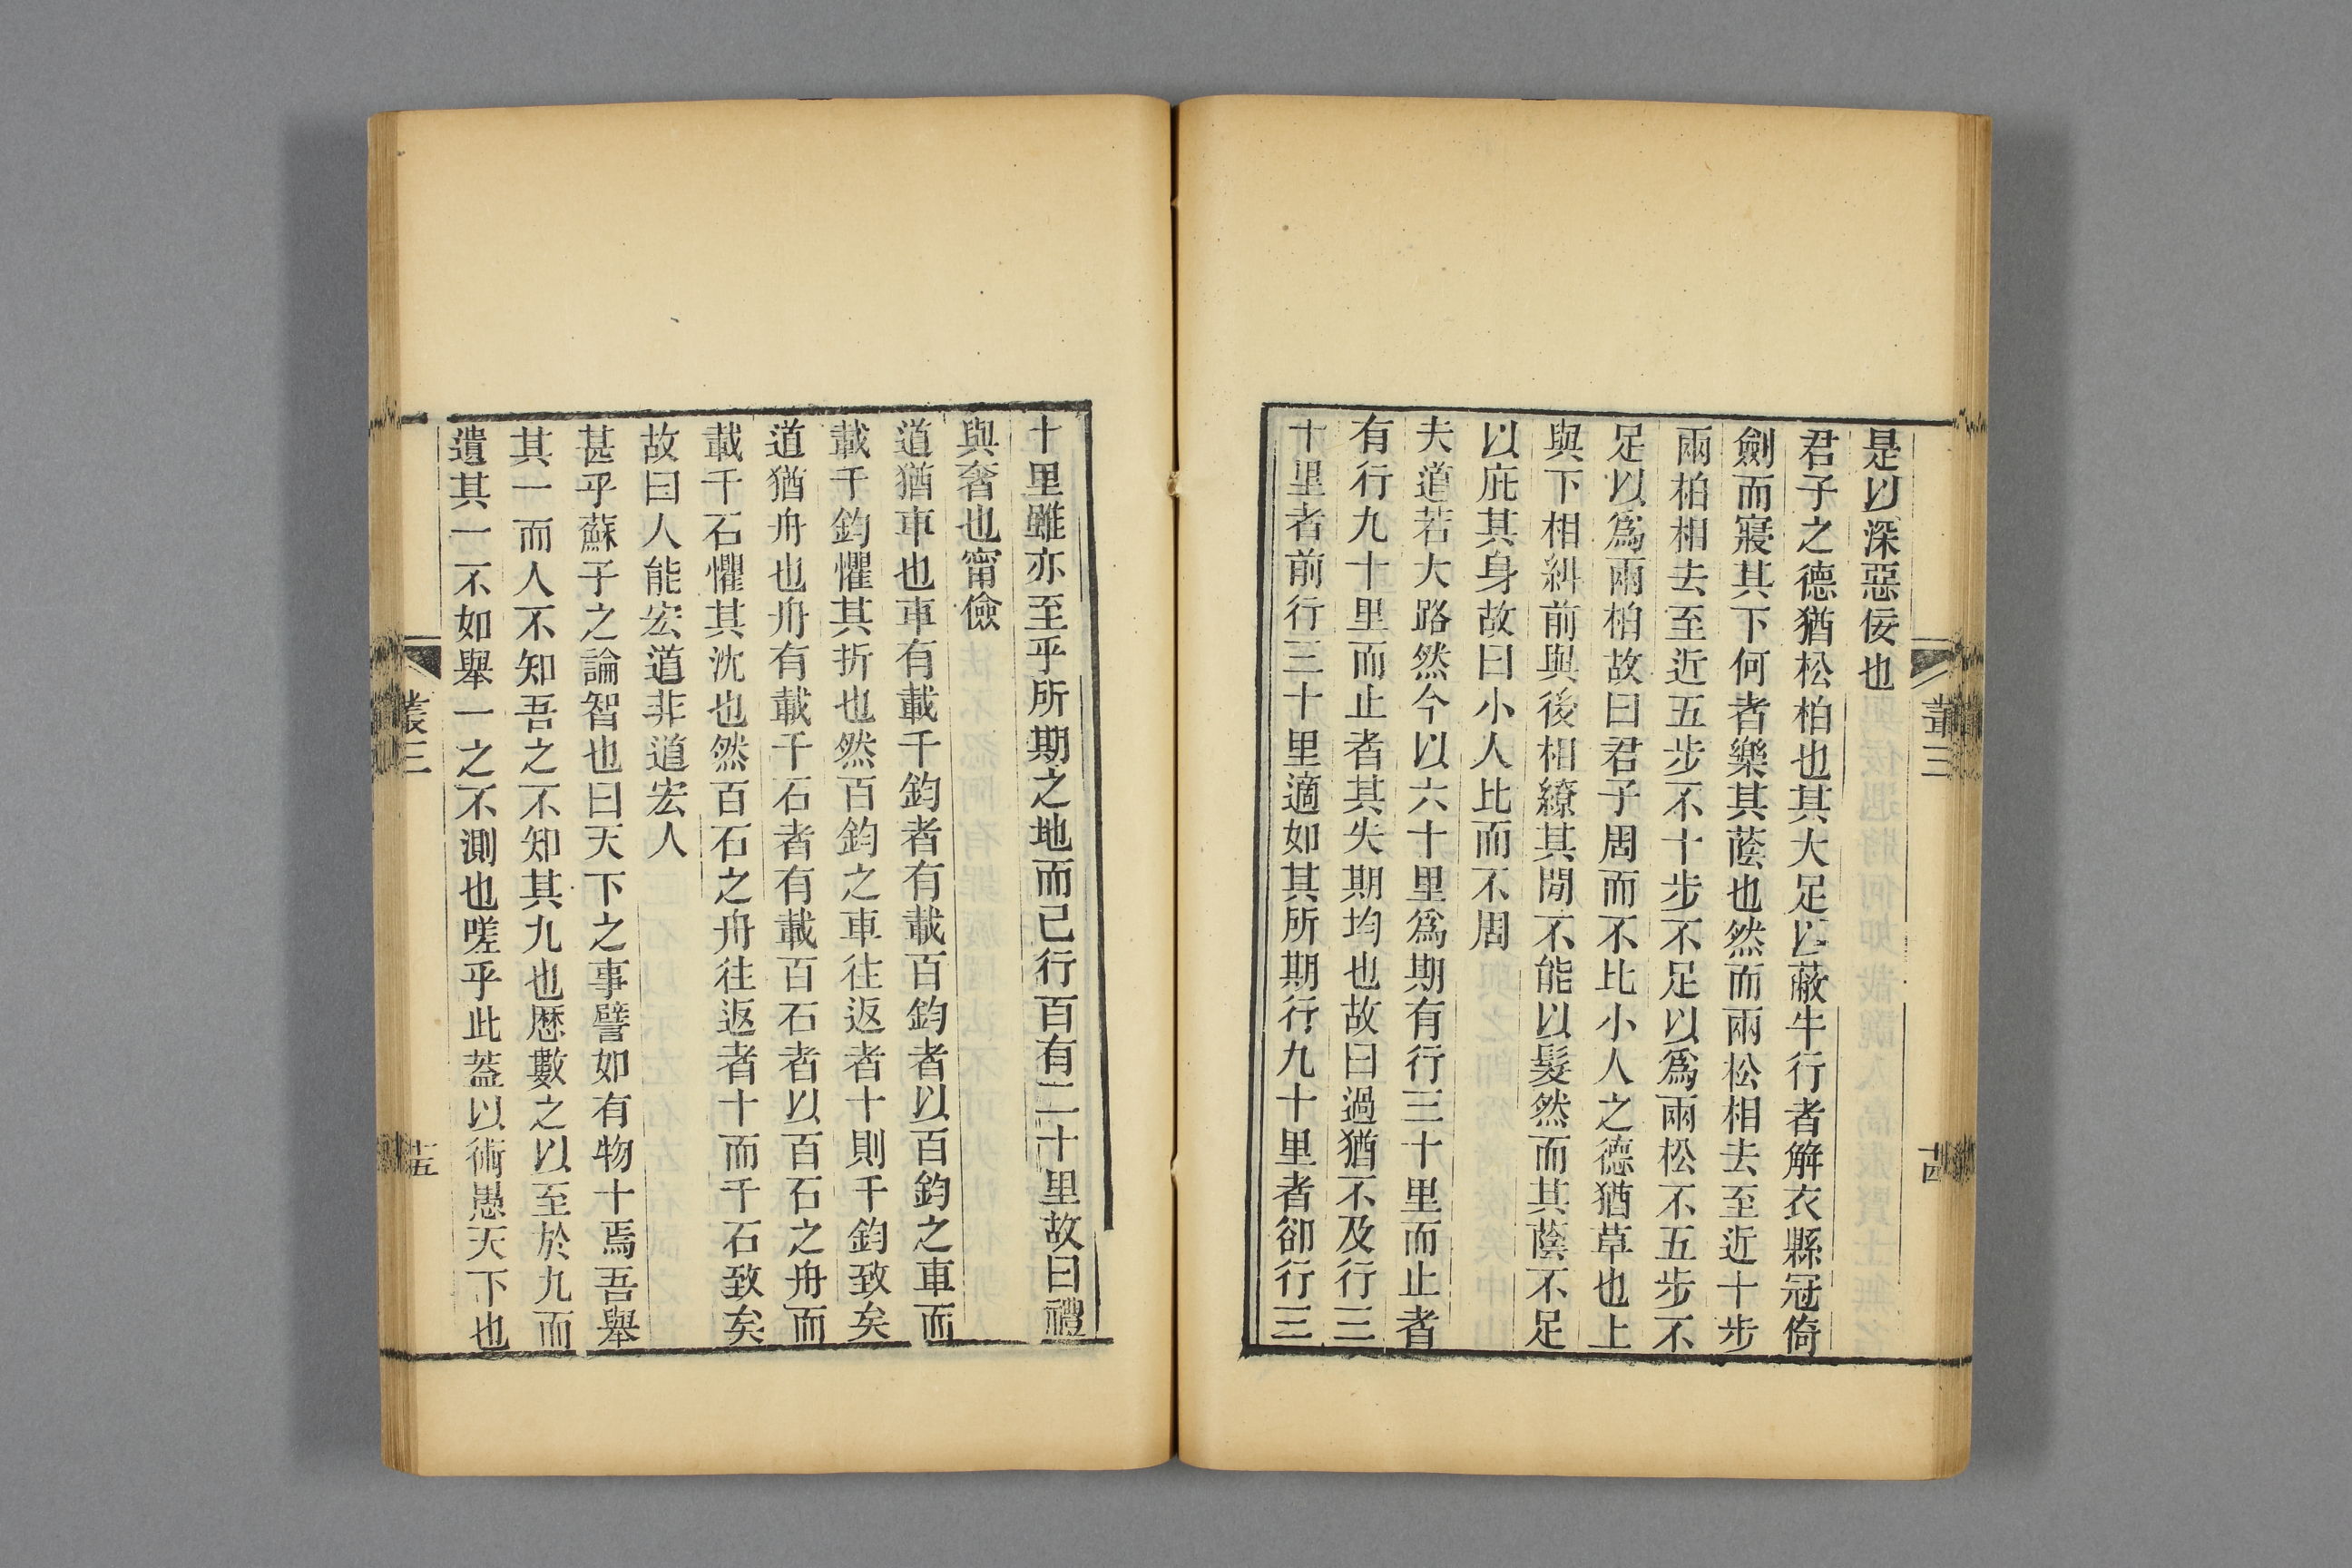 是以深惡佞也
君子之德猶松柏也其大足以蔽牛行者解衣縣冠倚
劍而寢其下何者樂其蔭也然而兩松相去至近十步
兩柏相去至近五步不十步不足以爲兩松不五步不
足以爲兩柏故曰君子周而不比小人之德猶草也上
與下相糾前與後相繚其閒不能以髮然而其蔭不足
以庇其身故曰小人比而不周
夫道若大路然今以六十里爲期有行三十里而止者
有行九十里而止者其失期均也故曰過猶不及行三
十里者前行三十里適如其所期行九十里者卻行三
叢三
十四
十里雖亦至乎所期之地而已行百有二十里故曰禮
與奢也甯儉
道猶車也車有載千鈞者有載百鈞者以百鈞之車而
載千鈞懼其折也然百鈞之車往返者十則千鈞致矣
道猶舟也舟有載千石者有載百石者以百石之舟而
載千石懼其沈也然百石之舟往返者十而千石致矣
故曰人能宏道非道宏人
甚乎蘇子之論智也曰天下之事譬如有物十焉吾舉
其一而人不知吾之不知其九也歷數之以至於九而
遺其一不如舉一之不測也嗟乎此蓋以術愚天下也
叢三
十五